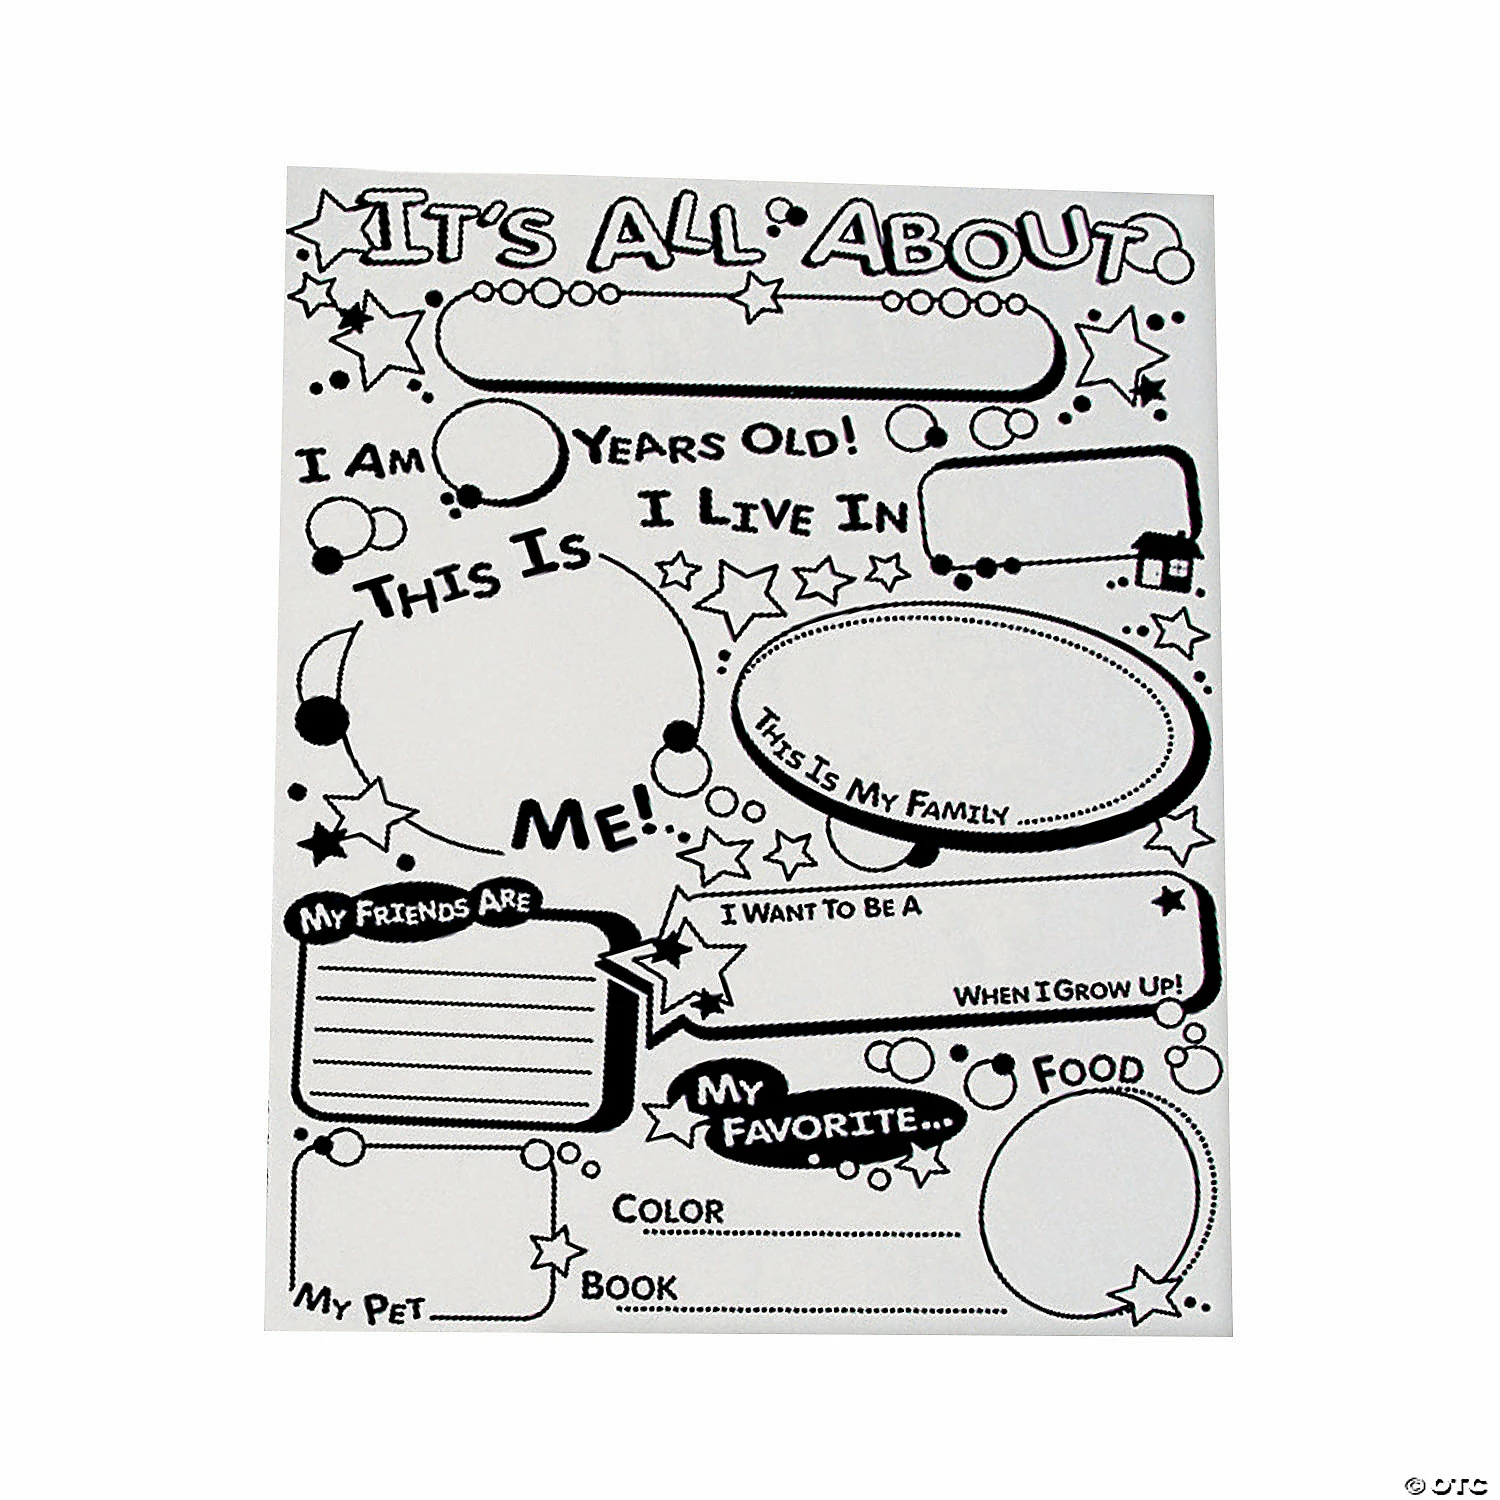 IT'S ALL ABOUT
I AM
YEARS OLD!
I LIVE IN
THIS IS
ME!
THIS IS MY FAMILY
MY FRIENDS ARE
I WANT TO BE A
WHEN I GROW UP!
MY
FAVORITE...
FOOD
COLOR
BOOK
MY PET
© OTC